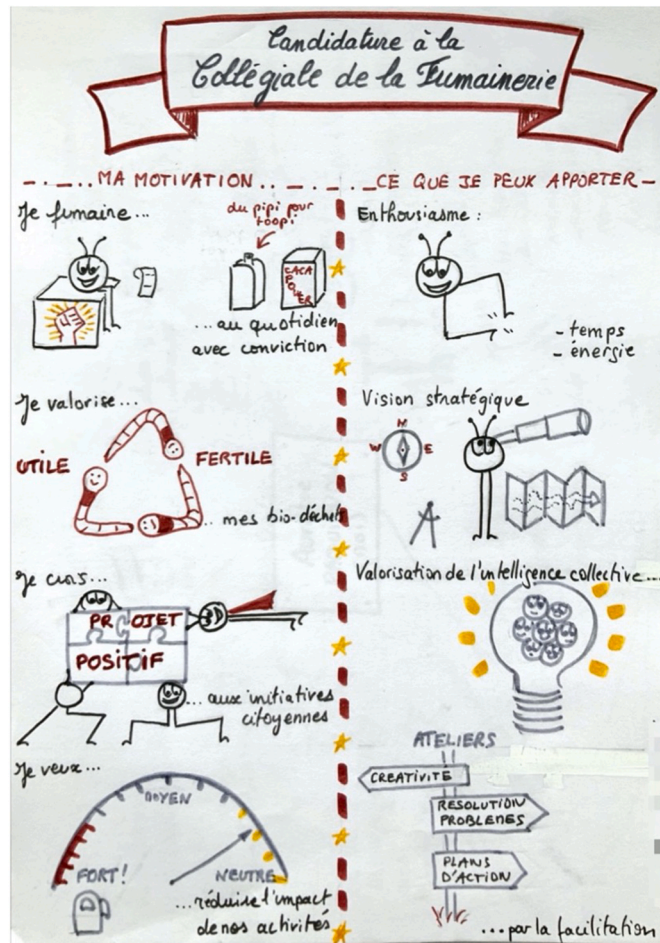 Candidature à la
Collégiale de la Fumainerie
MA MOTIVATION
Je fumaire...
du pipi pour
toopi
CACA
POWER
...au quotidien
avec conviction
Je valorise...
UTILE
FERTILE
... mes bio-déchets
Je crois...
PROJET
POSITIF
... aux initiatives
citoyennes
Je veux...
MOYEN
FORT!
NEUTRE
...réduire l'impact
de nos activités
CE QUE JE PEUX APPORTER
Enthousiasme :
- temps
- énergie
Vision stratégique
N
W
E
S
Valorisation de l'intelligence collective...
ATELIERS
CREATIVITÉ
RESOLUTION
PROBLEMES
PLANS
D'ACTION
...par la facilitation